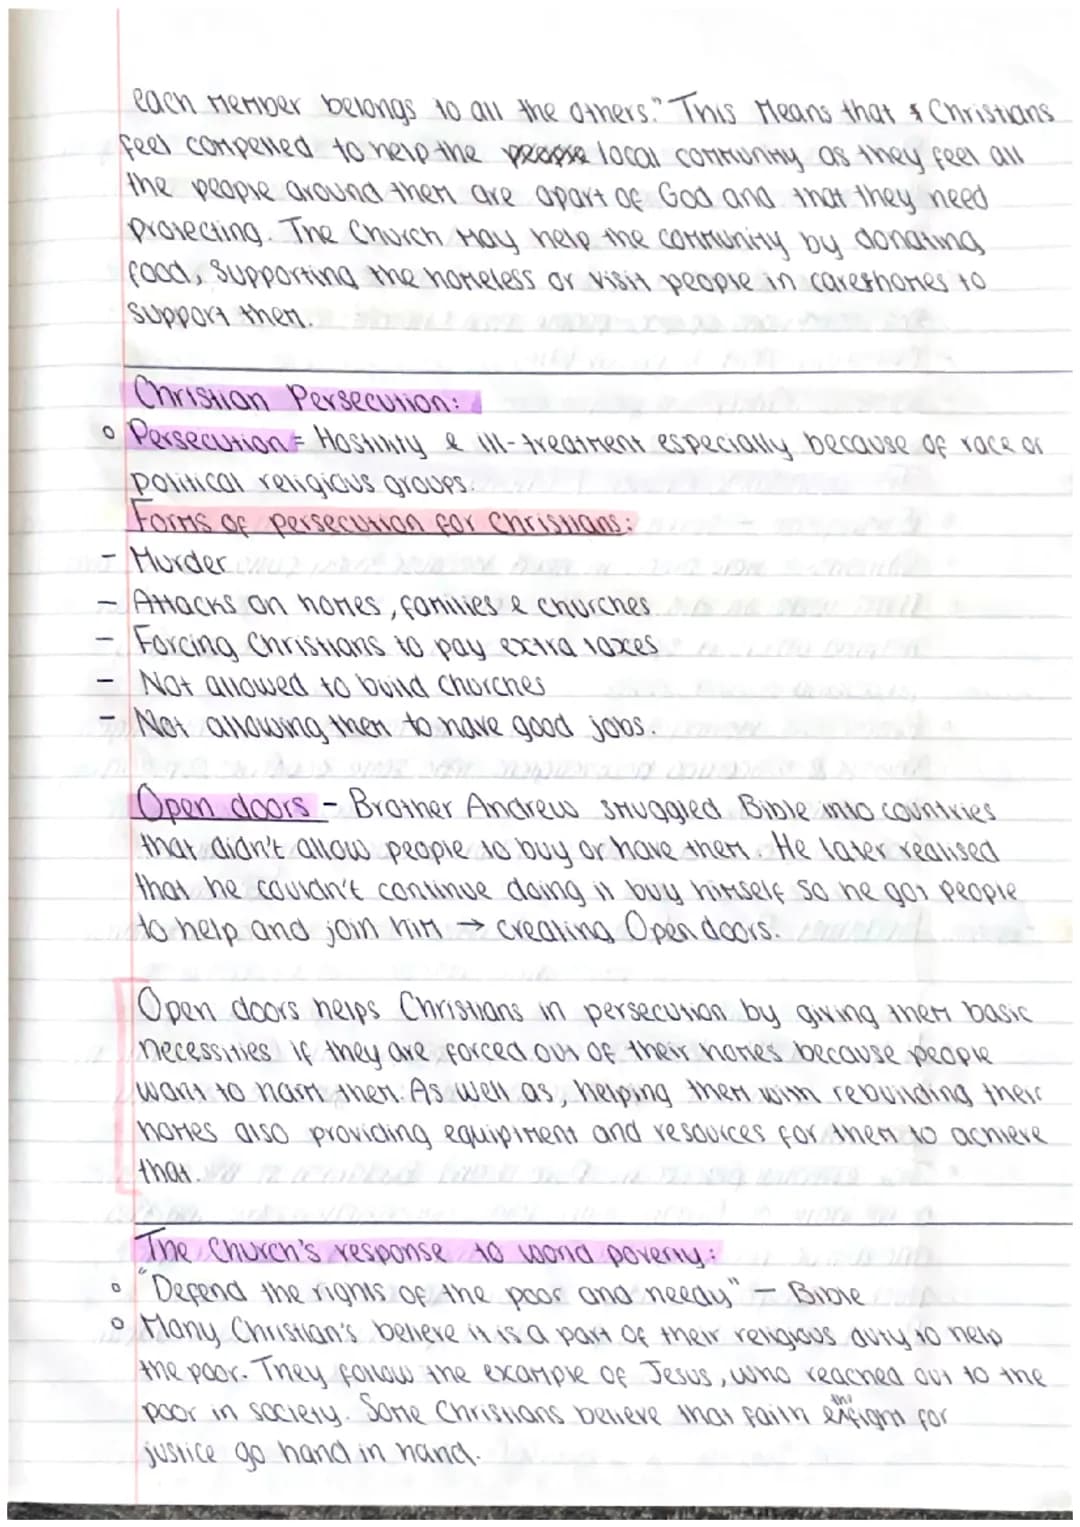 each member belongs to all the others." This means that & Christians
feel compelled to help the people local community as they feel all
the people around them are apart of God and that they need
protecting. The Church may help the community by donating
food, supporting the homeless or visit people in careshomes to
support them.
Christian Persecution:
Persecution = Hostility & ill-treatment especially because of race or
political religious groups.
Forms of persecution for Christians:
- Murder
- Attacks on homes, families & churches
- Forcing Christians to pay extra taxes
- Not allowed to build churches
- Not allowing them to have good jobs.
Open doors - Brother Andrew smuggled Bible into countries
that didn't allow people to buy or have them. He later realised
that he couldn't continue doing it buy himself so he got people
to help and join him → creating Open doors.
Open doors helps Christians in persecution by giving them basic
necessities if they are forced out of their homes because people
want to harm them. As well as, helping them with rebuilding their
homes also providing equipment and resources for them to achieve
that.
The Church's response to world poverty:
"Defend the rights of the poor and needy" - Bible
Many Christian's believe it is a part of their religious duty to help
the poor. They follow the example of Jesus, who reached out to the
poor in society. Some Christians believe that faith & the fight for
justice go hand in hand.